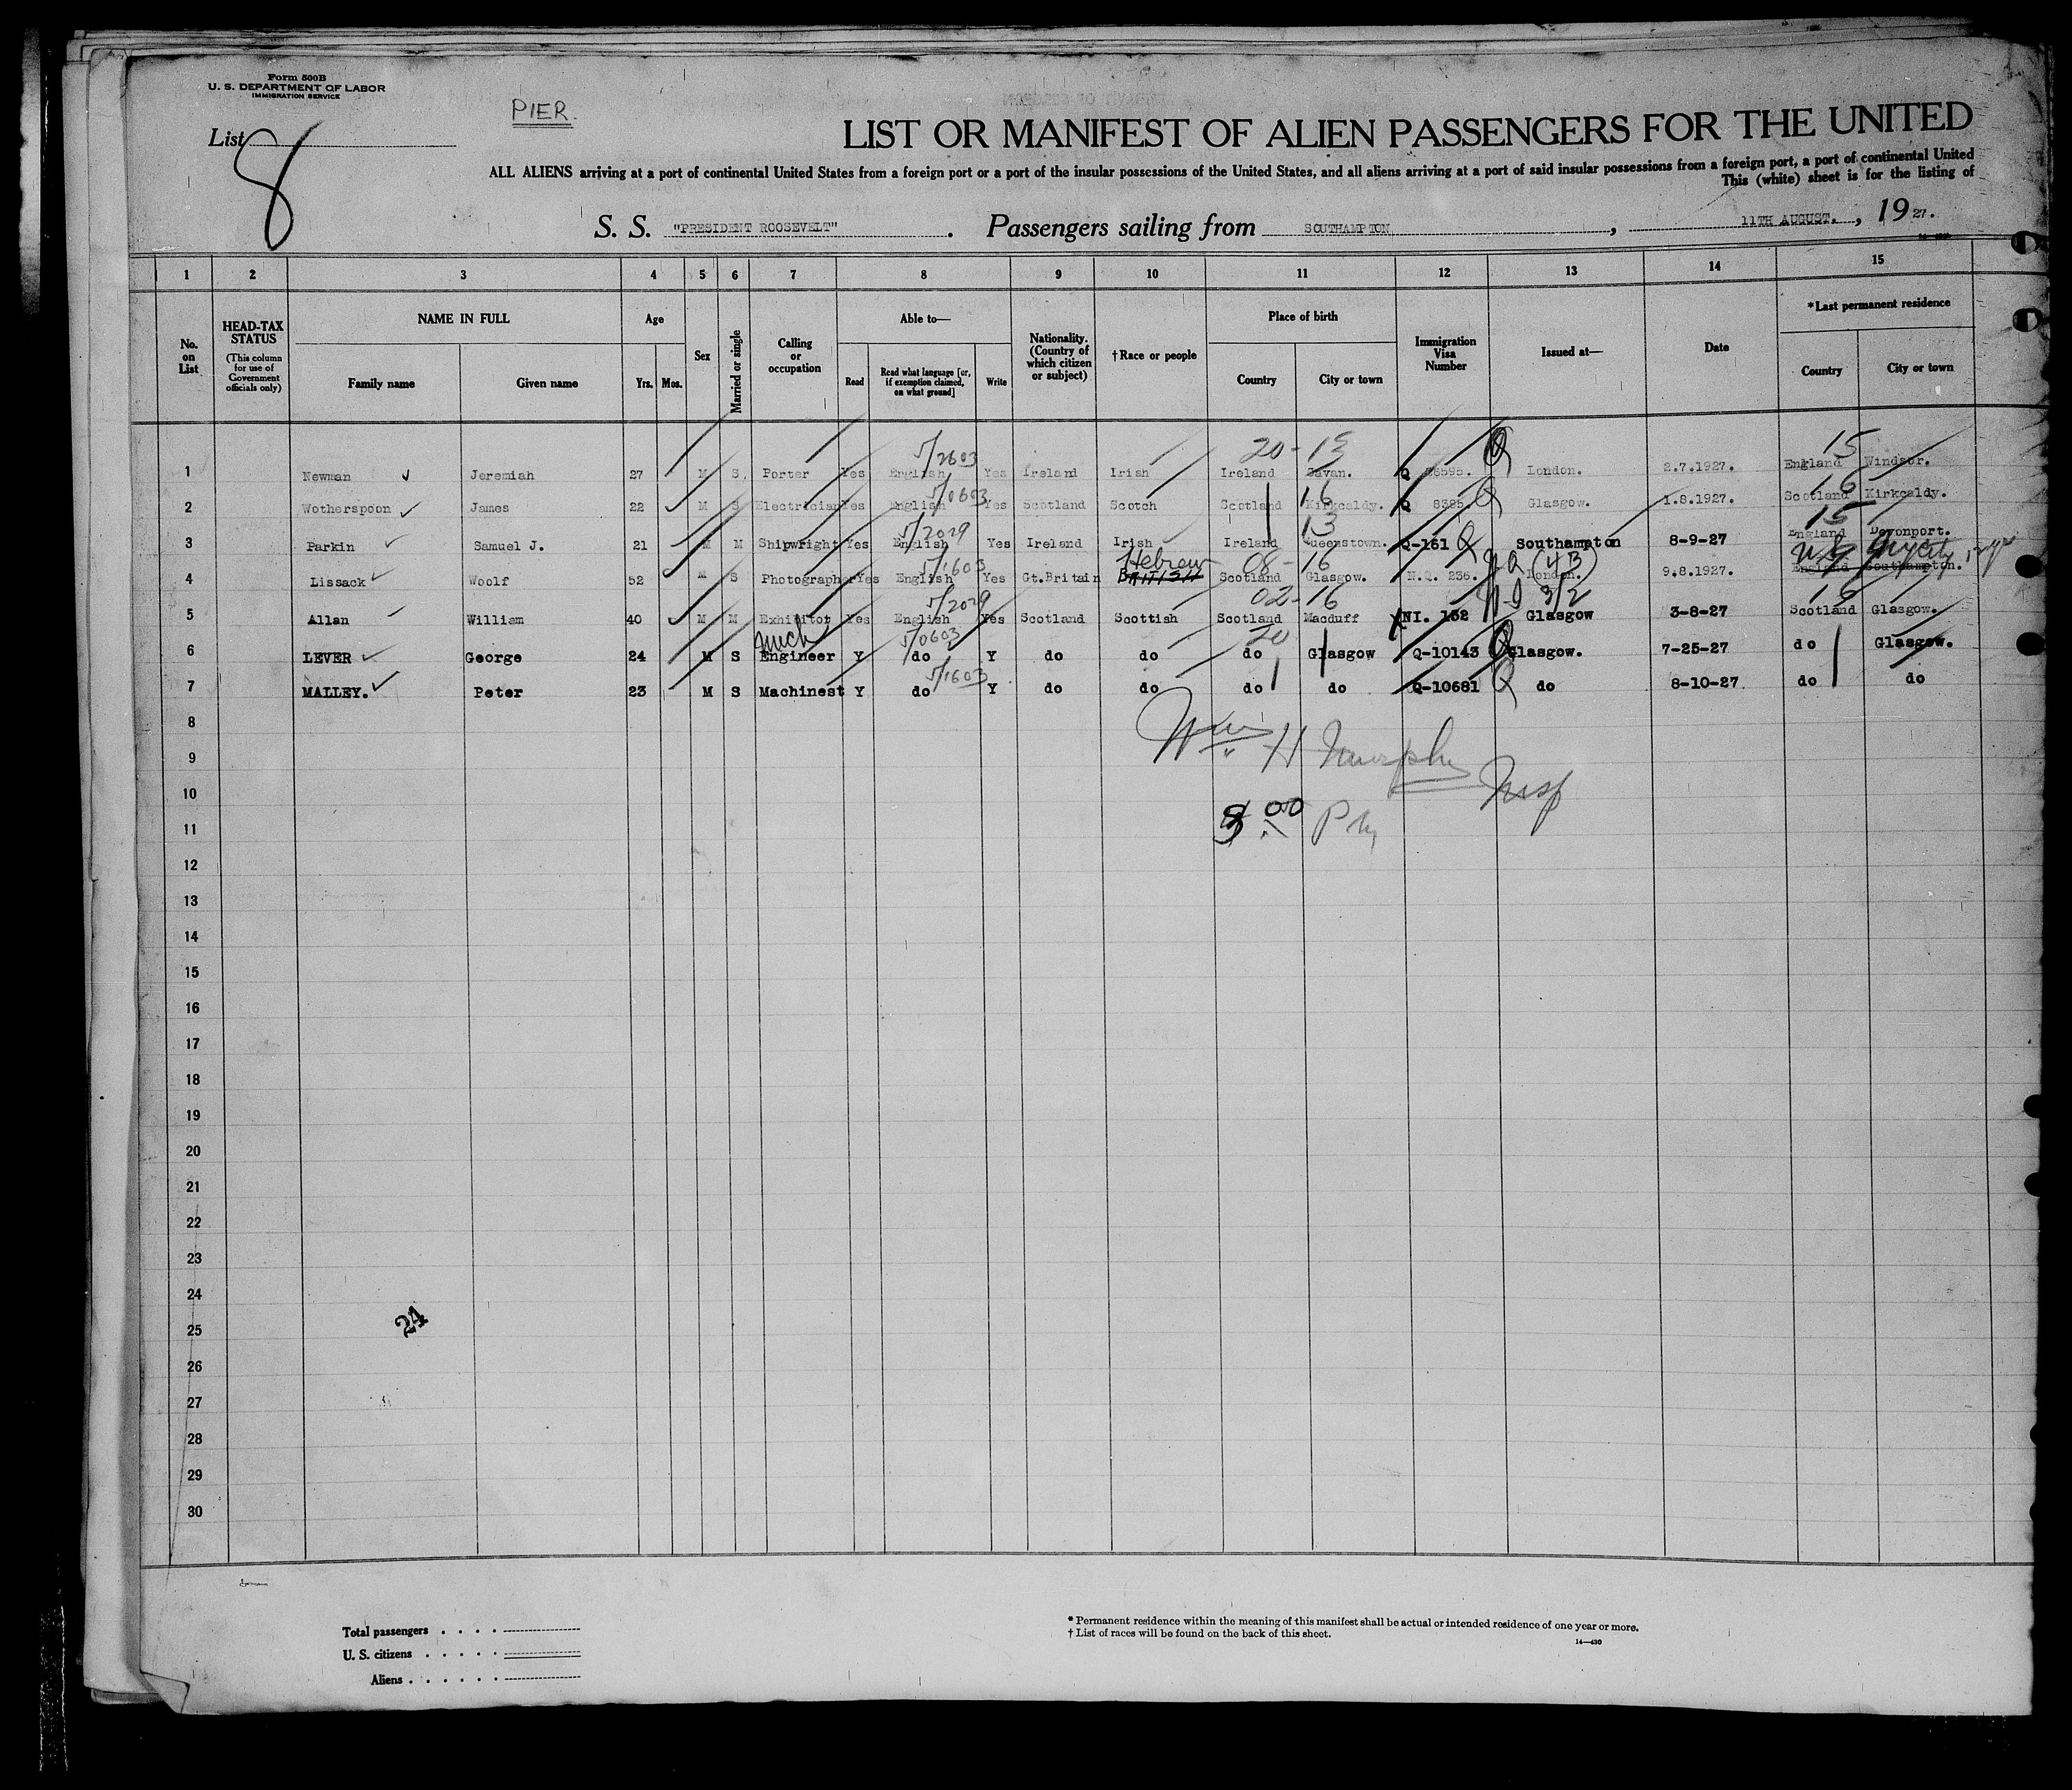 Form 500B
U. S. DEPARTMENT OF LABOR
IMMIGRATION SERVICE
PIER.
List 8
LIST OR MANIFEST OF ALIEN PASSENGERS FOR THE UNITED
ALL ALIENS arriving at a port of continental United States from a foreign port or a port of the insular possessions of the United States, and all aliens arriving at a port of said insular possessions from a foreign port, a port of continental United
This (white) sheet is for the listing of
S. S. "PRESIDENT ROOSEVELT" . Passengers sailing from SOUTHAMPTON , 11TH AUGUST. , 19 27.
1 2 3 4 5 6 7 8 9 10 11 12 13 14 15
No. on List
HEAD-TAX STATUS
(This column for use of Government officials only)
NAME IN FULL
Family name Given name
Age
Yrs. Mos.
Sex
Married or single
Calling or occupation
Able to—
Read Read what language [or, if exemption claimed, on what ground] Write
Nationality. (Country of which citizen or subject)
†Race or people
Place of birth
Country City or town
Immigration Visa Number
Issued at—
Date
*Last permanent residence
Country City or town
5/2603 20-13 Q 15
1 Newman Jeremiah 27 M S. Porter Yes English Yes Ireland Irish Ireland Cavan. Q London. 2.7.1927. England Windsor.
5/0603 16 Q 16
2 Wotherspoon James 22 M S Electrician Yes English Yes Scotland Scotch Scotland Kirkcaldy. Q 8385. Glasgow. 1.8.1927. Scotland Kirkcaldy.
5/2029 13 15
3 Parkin Samuel J. 21 M M Shipwright Yes English Yes Ireland Irish Ireland Queenstown. Q-161 Q Southampton 8-9-27 England Devonport.
5/1603 Hebrew 08-16 (4B)
4 Lissack Woolf 52 M S Photographer Yes English Yes Gt.Britain BRITISH Scotland Glasgow. N.Q. 236. London. 9.8.1927. England Southampton.
5/2029 02-16 3/2 16
5 Allan William 40 M M Exhibitor Yes English Yes Scotland Scottish Scotland Macduff NI. 132 Glasgow 3-8-27 Scotland Glasgow.
Mech 5/0603 20 Q
6 LEVER George 24 M S Engineer Y do Y do do do Glasgow Q-10143 Glasgow. 7-25-27 do Glasgow.
5/1603 Q
7 MALLEY. Peter 23 M S Machinest Y do Y do do do do Q-10681 do 8-10-27 do do
8
Wm H Murphy Insp
9
10
00 Pm
11
12
13
14
15
16
17
18
19
20
21
22
23
24
24
25
26
27
28
29
30
Total passengers . . . .
U. S. citizens . . . . .
Aliens . . . . . .
* Permanent residence within the meaning of this manifest shall be actual or intended residence of one year or more.
† List of races will be found on the back of this sheet.
14—430